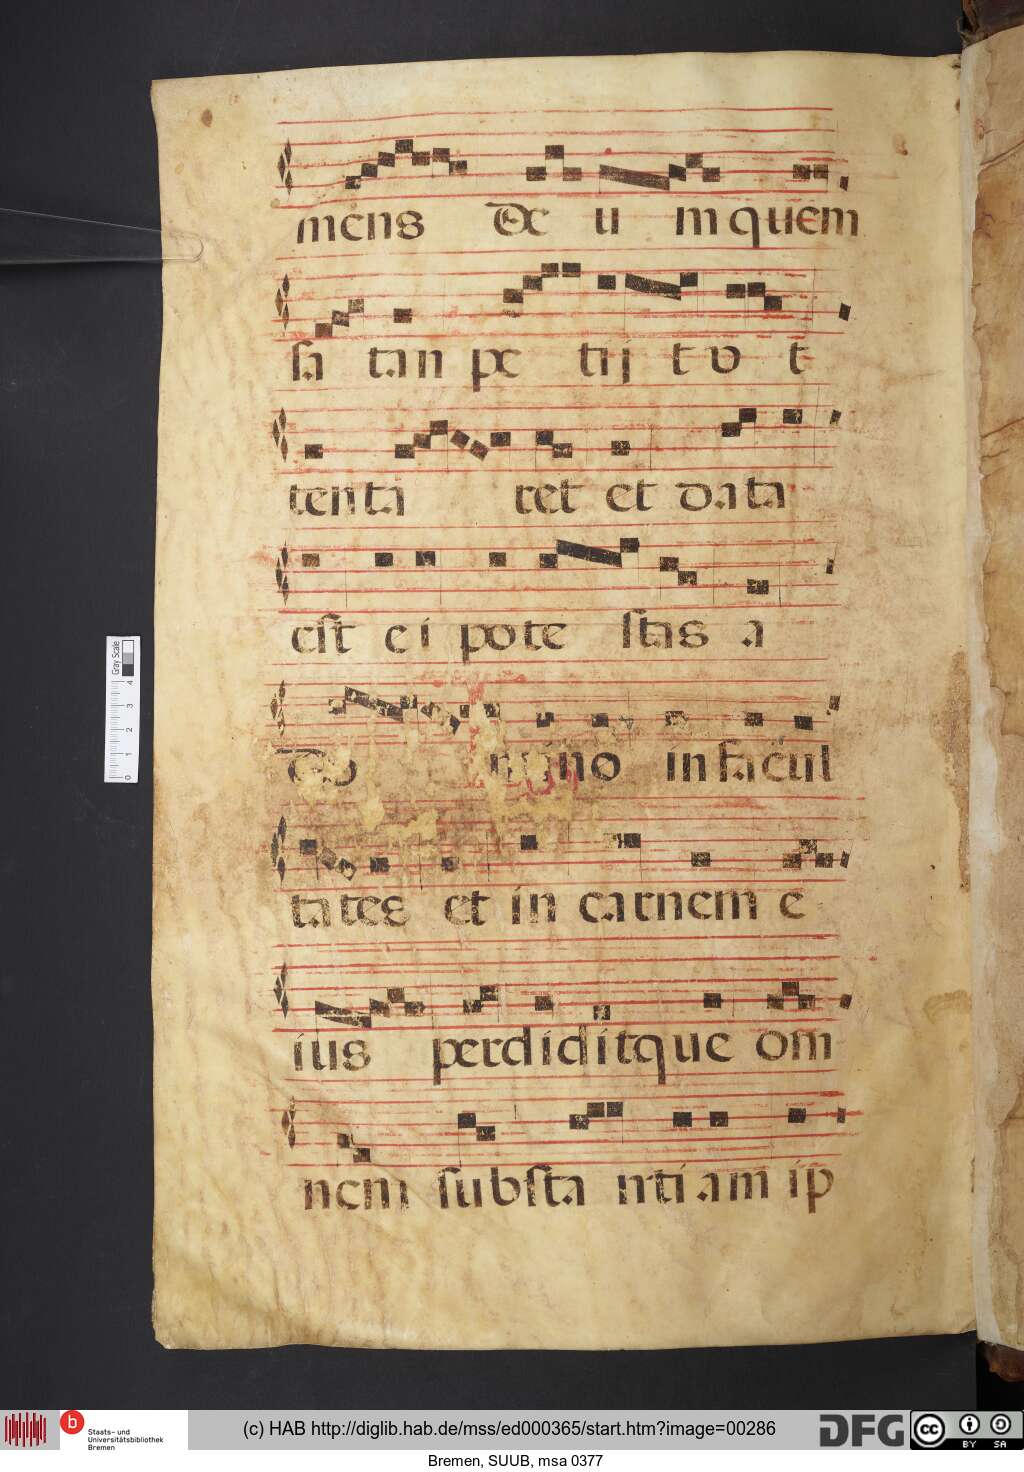 mens De u m quem
sa tan pe tij t v t
tenta ret et data
est ei pote stas a
Do mino in facul
tates et in carnem e
ius perdiditque om
nem substa ntiam ip
Gray Scale
4 3 2 1 0
b Staats- und Universitätsbibliothek Bremen
(c) HAB http://diglib.hab.de/mss/ed000365/start.htm?image=00286
DFG
cc BY SA
Bremen, SUUB, msa 0377